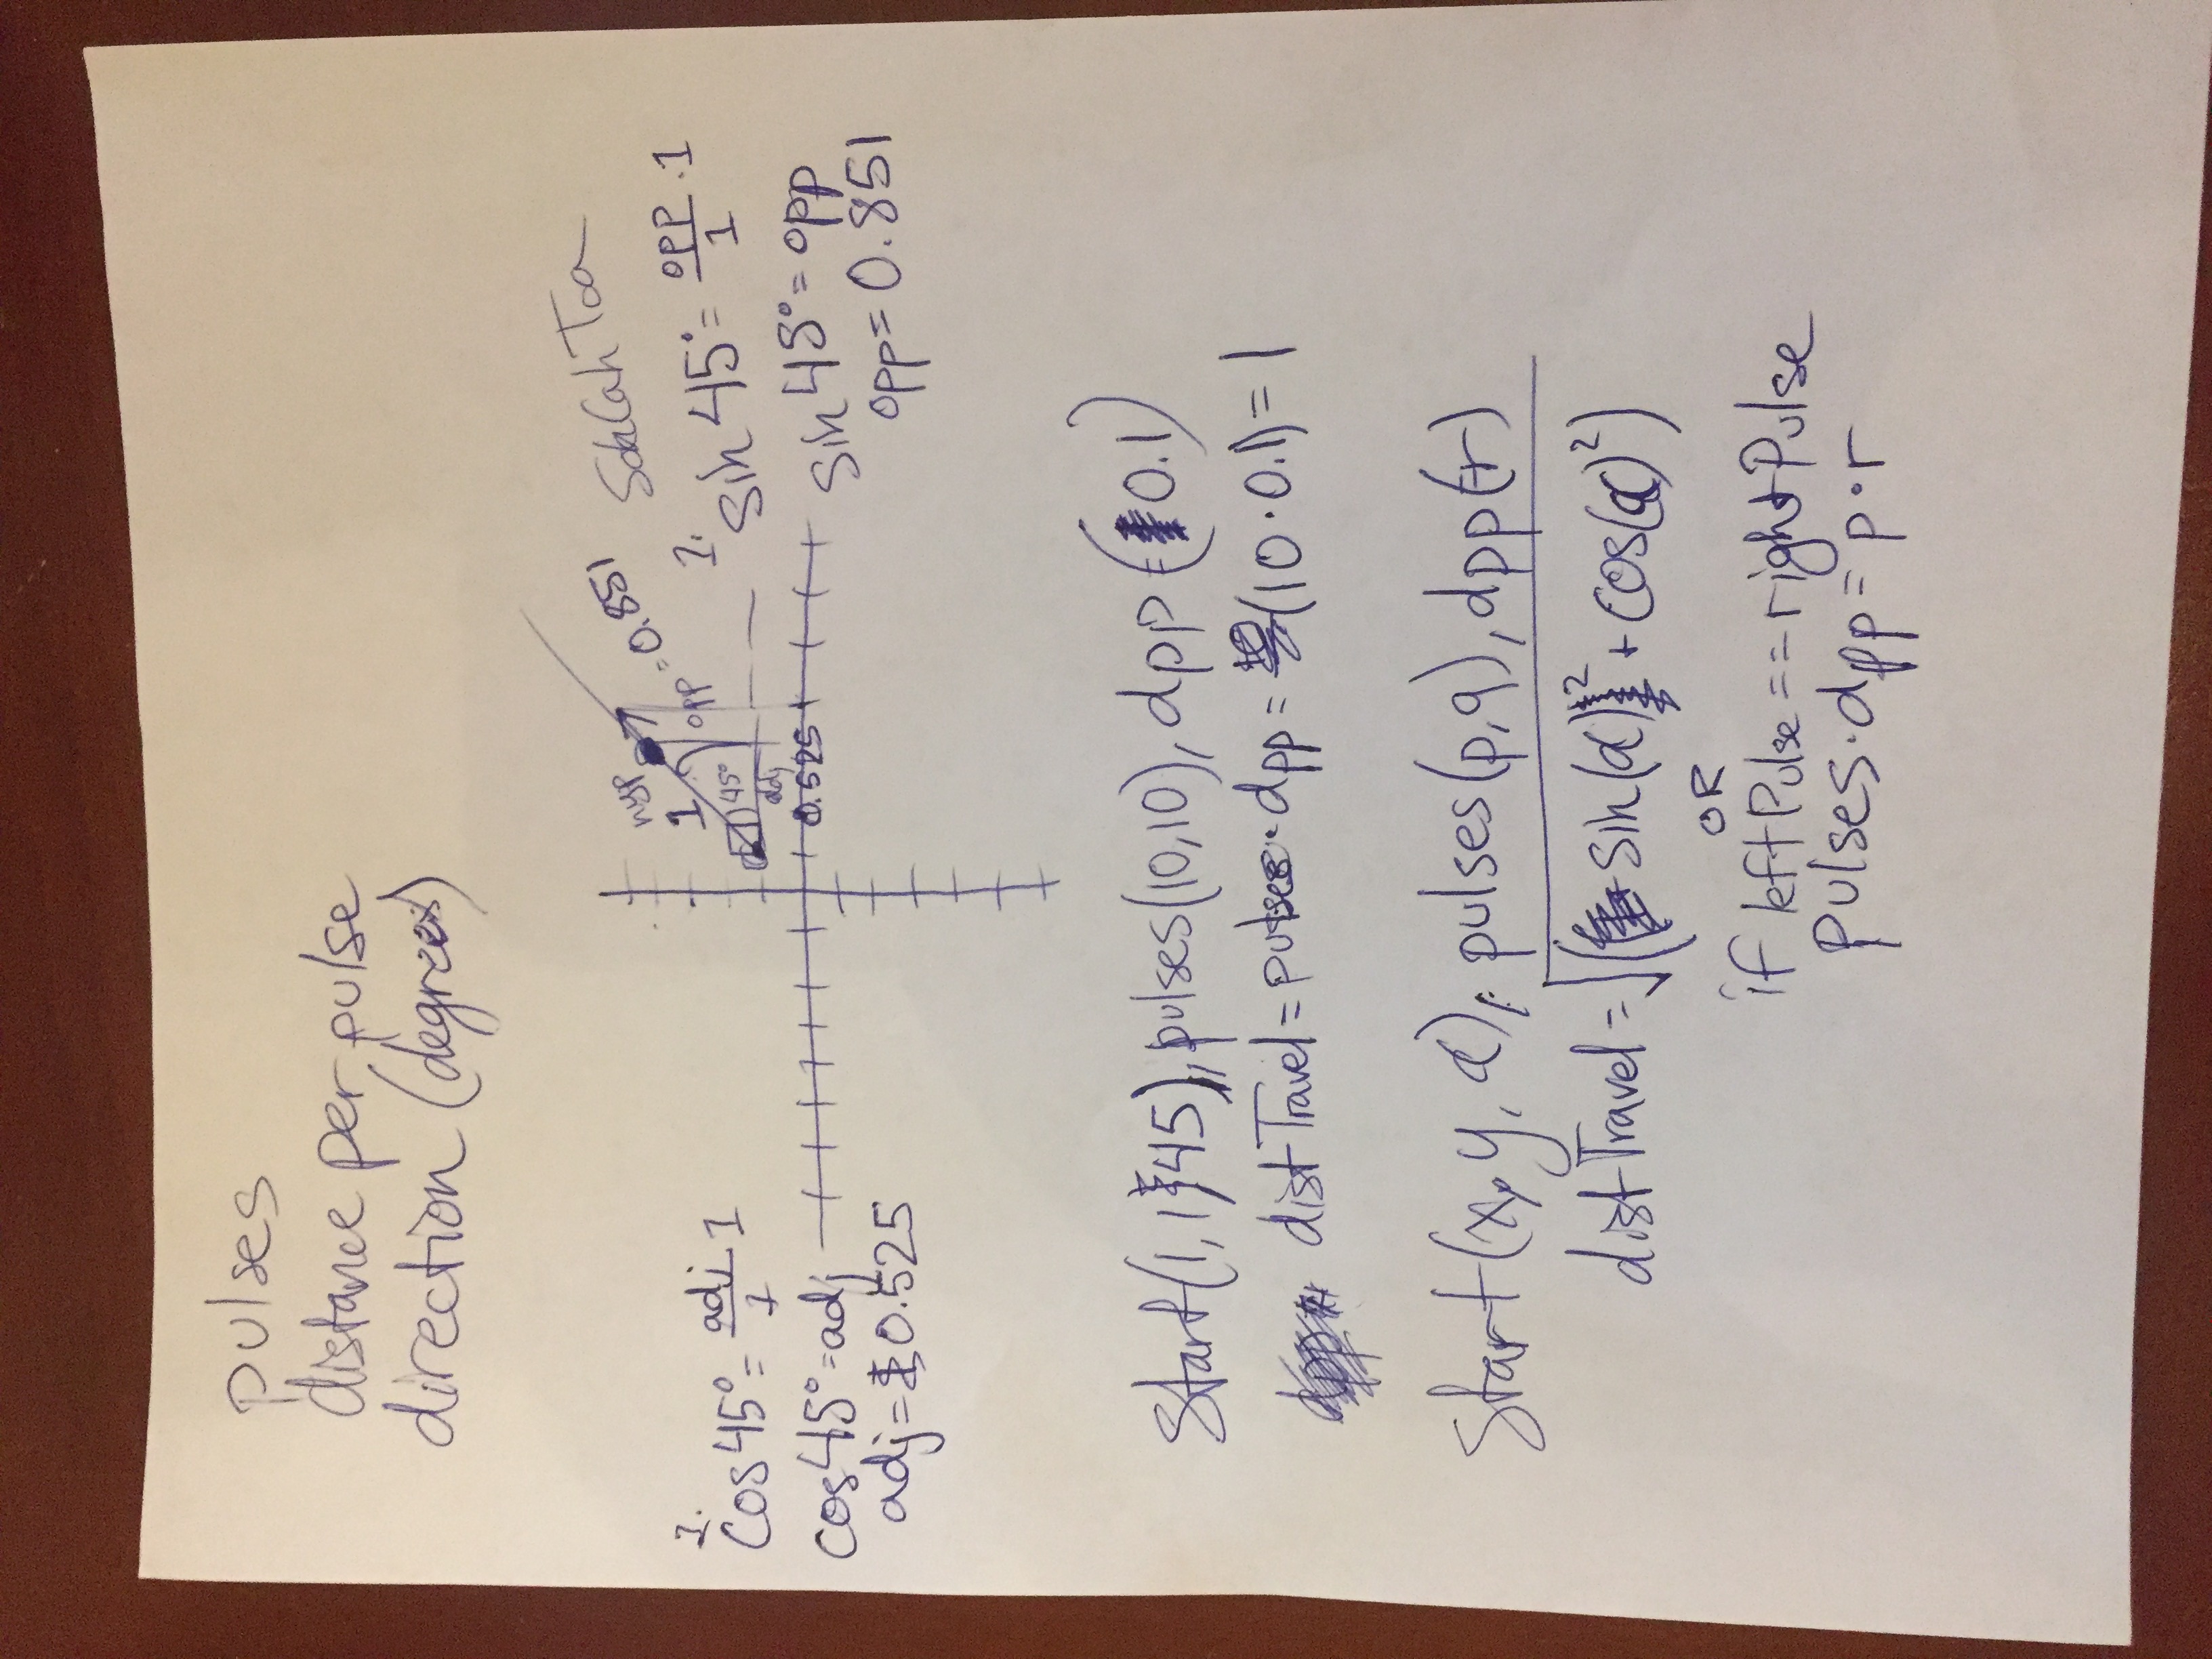 pulses
distance per pulse
direction (degrees)
SohCahToa
hyp
1
45°
opp = 0.851
adj
0.525
1.
cos 45° = adj/1 · 1
cos 45° = adj
adj = 0.525
1.
sin 45° = opp/1 · 1
sin 45° = opp
opp = 0.851
Start(1, 1, 45), pulses(10,10), dpp(0.1)
distTravel = pulses · dpp = (10 · 0.1) = 1
Start(x, y, α), pulses(p,q), dpp(r)
distTravel = √(sin(α)² + cos(α)²)
OR
if leftPulse == rightPulse
pulses · dpp = p · r